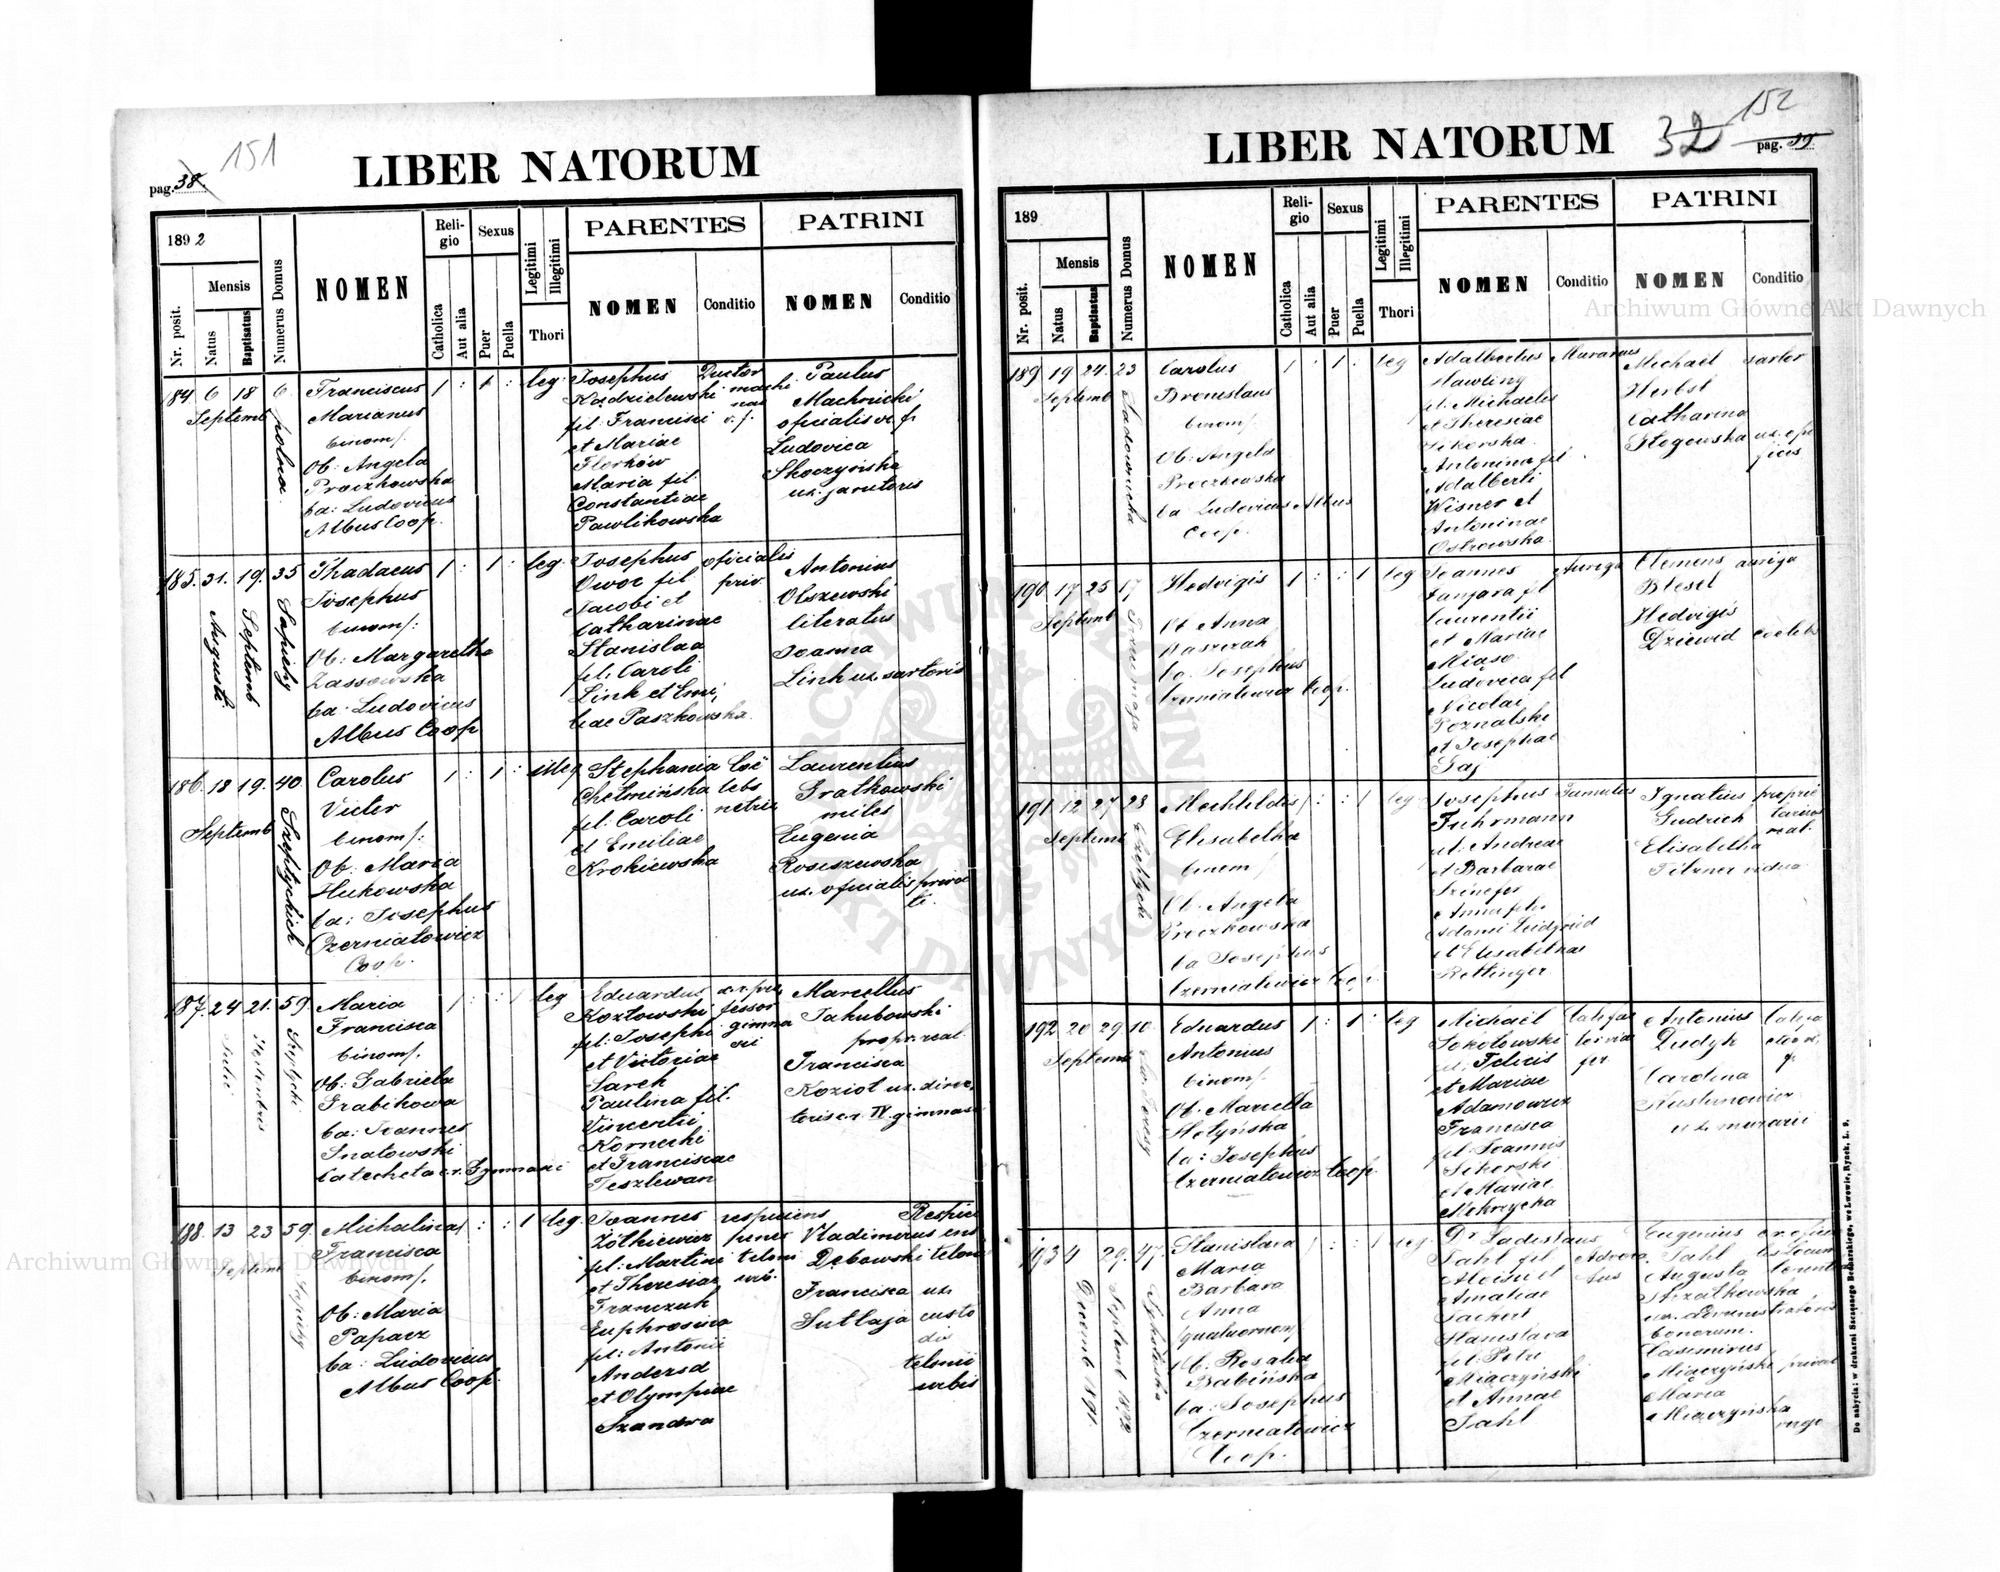 151
pag. 38.
LIBER NATORUM
1892
Nr. posit.
Mensis
Natus
Baptisatus
Numerus Domus
NOMEN
Religio
Catholica
Aut alia
Sexus
Puer
Puella
Legitimi
Illegitimi
Thori
PARENTES
NOMEN
Conditio
PATRINI
NOMEN
Conditio
184 6 18 6
Septemb
polna
Franciscus
Marianus
binom/.
Ob: Angela
Proczkowska
ba: Ludovicus
Albus Coop.
1 : 1 : leg.
Josephus
fil: Francisci
et Mariae
Florków
Maria fil:
Constantiae
Pawlikowska
Ductor
machi
nae
v. f.
Paulus
Machnicki
oficialis v. f.
Ludovica
Skoczyńska
ux. janitoris
185. 31. 19. 35
Augusti
Septemb
Sapiehy
Thadaeus
Josephus
binom/:
Ob: Margaretha
Zassowska
ba: Ludovicus
Albus Coop
1 : 1 : leg
Josephus
Owoc fil
Jacobi et
Catharinae
Stanislaa
fil: Caroli
Link et Emi,
liae Paszkowska
oficialis
priv.
Antonius
Olszewski
literatus
Joanna
Link ux. sartoris
186. 18 19. 40
Septemb
Szeptyckich
Carolus
Victor
binom/:
Ob: Maria
Hukowska
ba: Josephus
Czerniatowicz
Coop.
1 : 1 : illeg
Stephania
Chełmińska
fil: Caroli
et Emiliae
Krokiewska
Coe
lebs
Laurentius
Gratkowski
miles
Eugenia
Rosiszewska
ux. oficialis priva
ti.
187. 24 21. 59.
Julii
Septembris
Szeptycki
Maria
Francisca
binom/.
Ob: Gabriela
Grabikowa
ba: Joannes
Gnatowski
Catecheta c.r. Gymnasii
1 : : 1 leg
Eduardus
Kozłowski
fil: Josephi
et Victoriae
Sarek
Paulina fil.
Vincentii
Kornecki
et Franciscae
Teszlewan
c.r. pro,
fessor
gimna
sii
Marcellus
Jakubowski
propr. real.
Francisca
Kozioł ux. direc,
toris c.r. IV. gimnasi
188. 13 23 59.
Septemb
Sapiehy
Michalina
Francisca
binom/.
Ob: Maria
Paparz
ba: Ludovicus
Albus Coop.
1 : : 1 leg.
Joannes
Żółkiewicz
fil: Martini
et Theresiae
Franczuk
Euphrosina
fil: Antonii
Andersd
et Olympiae
Szandra
respiciens
penes
teloni
urb.
Vladimirus
Dębowski
Francisca
Sutlaja
Respici
ens
teloni
ux.
custo
dis
telonii
urbis
152
32
pag. 39
LIBER NATORUM
189
Nr. posit.
Mensis
Natus
Baptisatus
Numerus Domus
NOMEN
Religio
Catholica
Aut alia
Sexus
Puer
Puella
Legitimi
Illegitimi
Thori
PARENTES
NOMEN
Conditio
PATRINI
NOMEN
Conditio
189 19 24. 23
Septemb
Sadownicka
Carolus
Bronislaus
binom/.
Ob: Angela
Proczkowska
ba Ludovicus Albus
Coop.
1 : 1 : leg
Adalbertus
Hawling
fil: Michaelis
et Theresiae
Sikorska
Antonina fil
Adalberti
Wisner et
Antoninae
Ostrowska
Murarius
Michaël
Herbst
Catharina
Głogowska
sartor
ux. opi
ficis
190 17 25 17
Septemb
Hedvigis
Ob Anna
Daszczak
ba Josephus
Czerniatowicz Coop.
1 : : 1 leg
Joannes
Fanfara fil
Laurentii
et Mariae
Miąso
Ludovica fil
Nicolai
Poznalski
et Josephae
Gaj
Auriga
Clemens
Blesel
Hedvigis
Dziewid
auriga
coelebs
191 12 27 28
Septemb
Mechtildis
Elisabetha
binom/
Ob. Angela
Proczkowska
ba Josephus
Czerniatowicz Coop.
1 : : 1 leg
Josephus
Fuhrmann
fil. Andreae
et Barbarae
Anna fil:
Adami
et Elisabethae
Rettinger
Famulus
Ignatius
Gudrich
Elisabetha
Filzner vidua
proprie
tarius
real.
192 20 29 10.
Septemb
Eduardus
Antonius
binom/.
Ob. Marcella
Hołyńska
ba: Josephus
Czerniatowicz Coop.
1 : 1 : leg
Michaël
Sokołowski
fil: Felicis
et Mariae
Adamowicz
Francisca
fil: Joannis
Sikorski
et Mariae
Mokrzycka
Antonius
Dudyk
Carolina
Kustanowicz
ux. murarii
193 4 29. 47.
Decemb 1891.
Septemb 1892
Stanislava
Maria
Barbara
Anna
quatuornom/
Ob. Rosalia
Babińska
ba: Josephus
Czerniatowicz
Coop.
1 : : 1 leg
Dr Ladislaus
Tahl fil
Aloisii et
Amaliae
Stanislava
fil: Petri
Miączyński
et Annae
Tahl
Advoca
tus
Eugenius
Tahl
Augusta
Strzałkowska
ux. administratoris
bonorum.
Casimirus
Miączyński
Maria
Miączyńska
Do nabycia: w drukarni Szczęsnego Bednarskiego, we Lwowie, Rynek, L. 9.
Archiwum Główne Akt Dawnych
Archiwum Główne Akt Dawnych